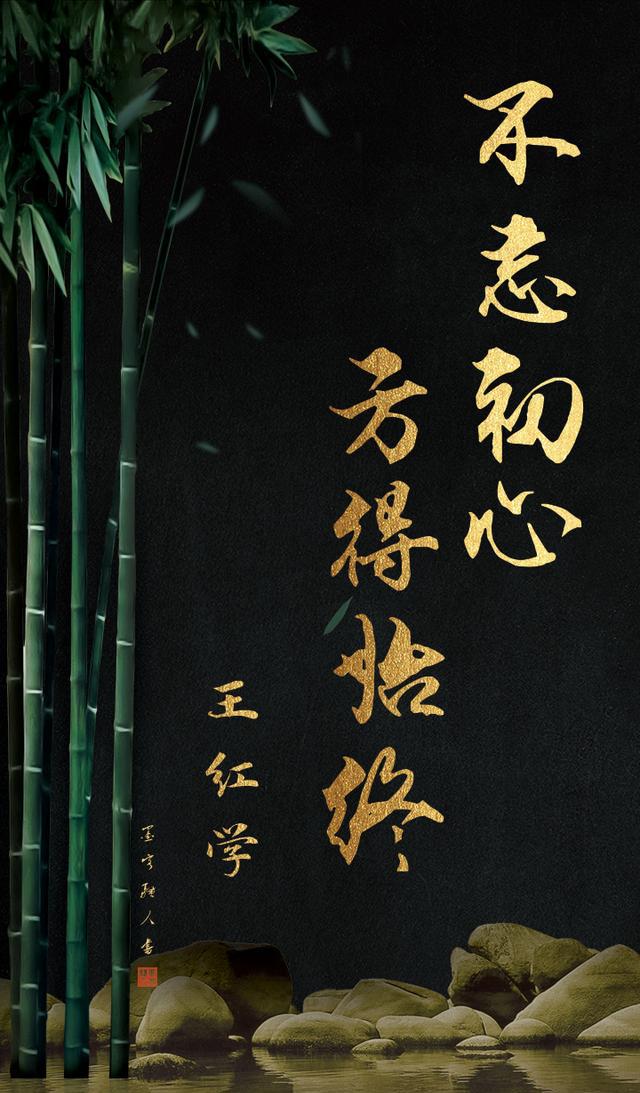 不忘初心
方得始终
王红学
墨 人书